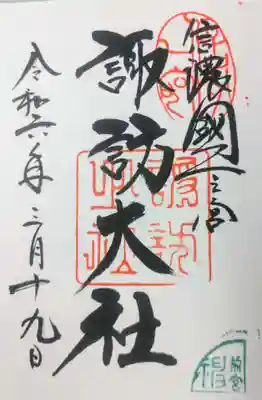 信濃國一之宮
諏訪大社
令和六年三月十九日
諏訪
大社